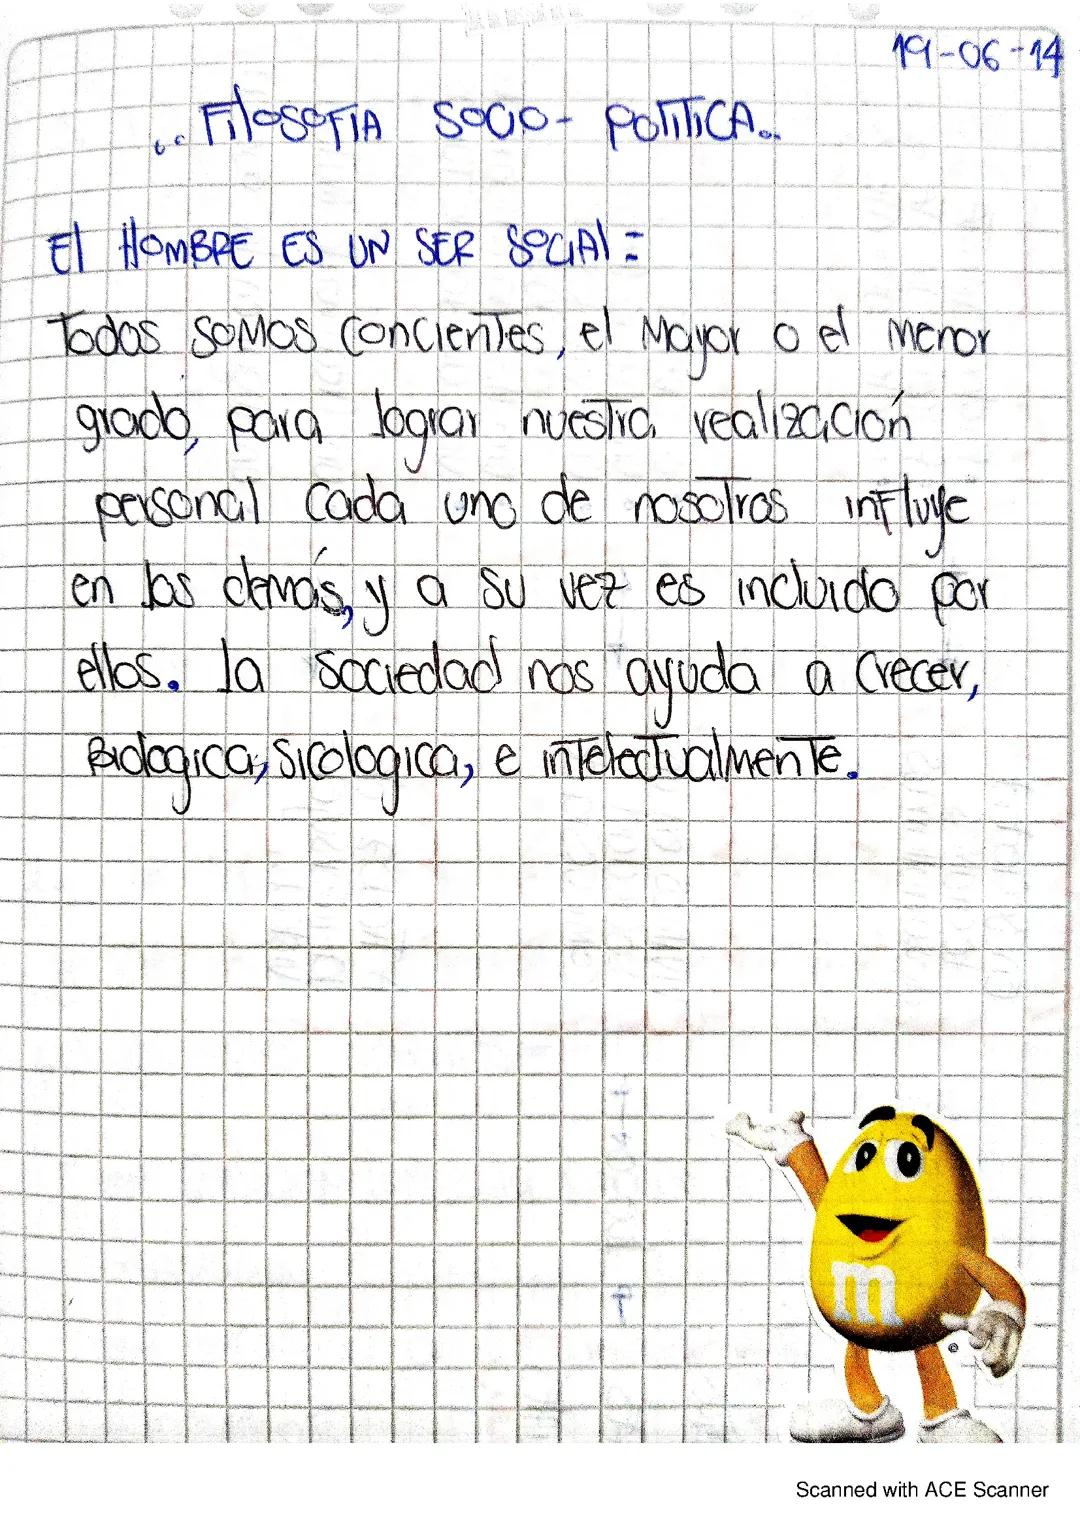 19-06-14
... Filosofía Socio-Política...
El Hombre es un ser social =
Todos somos concientes, el mayor o el menor
grado, para lograr nuestra realización
personal cada uno de nosotros influye
en los demás, y a su vez es incluido por
ellos. la sociedad nos ayuda a crecer,
Biologica, Sicologica, e intelectualmente.
m
Scanned with ACE Scanner